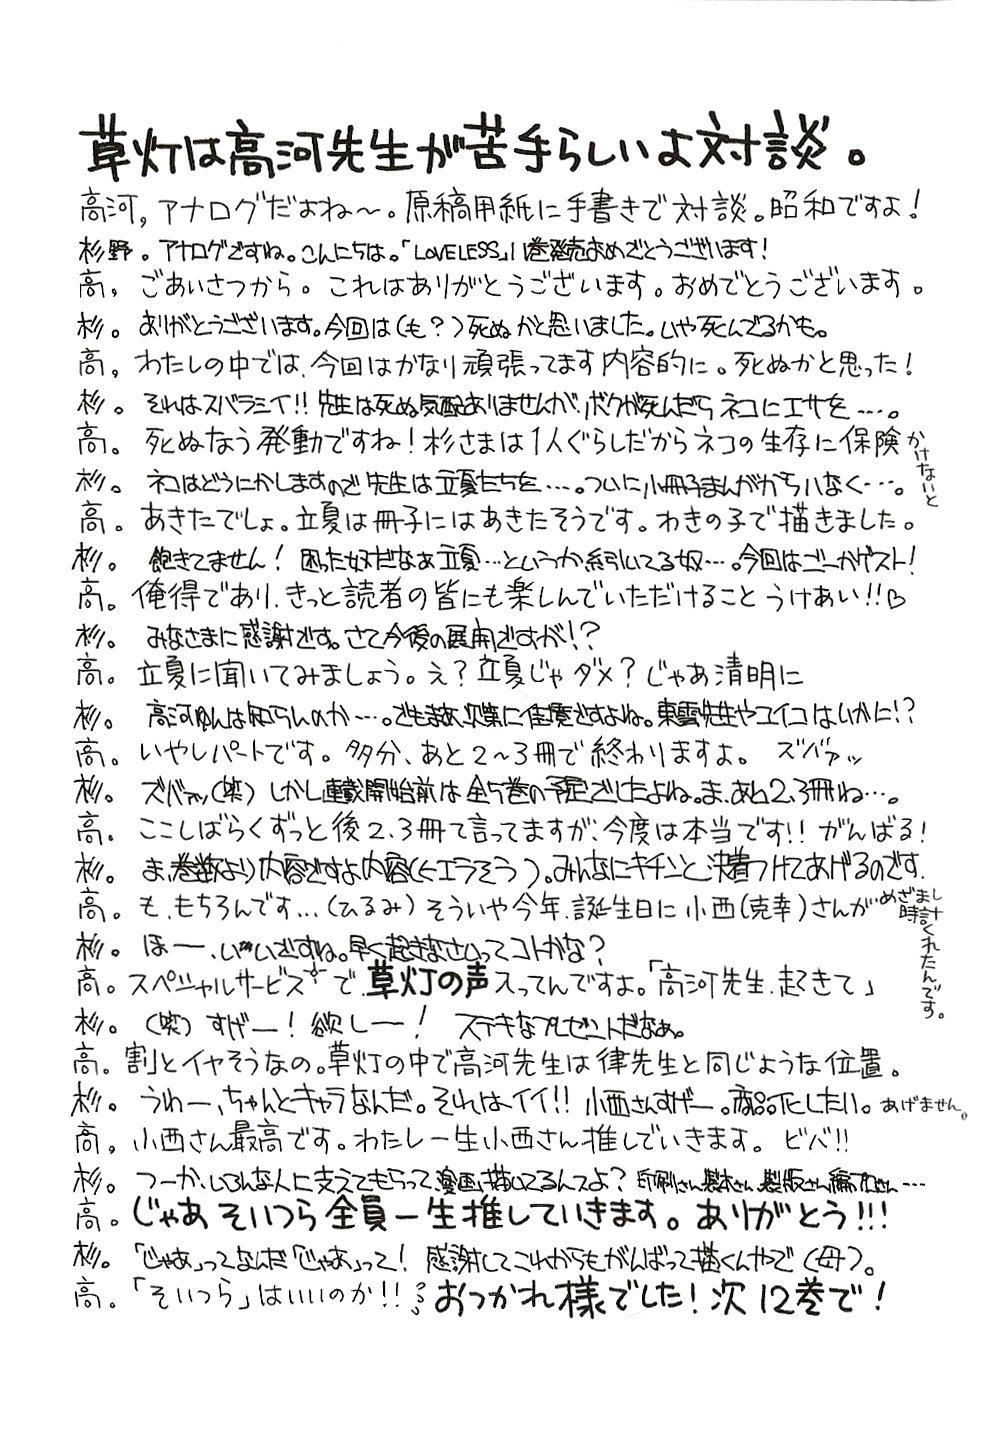 草灯は高河先生が苦手らしいよ対談。
高河, アナログだよね〜。原稿用紙に手書きで対談。昭和ですよ!
杉野。アナログですね。こんにちは。「LOVELESS」11巻発売おめでとうございます!
高, ごあいさつから。これはありがとうございます。おめでとうございます。
杉。ありがとうございます。今回は(も?)死ぬかと思いました。いや死んでるかも。
高, わたしの中では、今回はかなり頑張ってます内容的に。死ぬかと思った!
杉。それはスバラシイ!!先生は死ぬ気配ありませんが、ボクが死んだらネコにエサを…。
高。死ぬなう発動ですね!杉さまは1人ぐらしだからネコの生存に保険かけないと
杉。ネコはどうにかしますので先生は立夏たちを…。ついに小冊子まんがが立夏じゃなく…。
高。あきたでしょ。立夏は冊子にはあきたそうです。わきの子で描きました。
杉。飽きてません!困った奴だなぁ立夏…というか糸引いてる奴…。今回はゴーカゲスト!
高。俺得であり、きっと読者の皆にも楽しんでいただけることうけあい!!♡
杉。みなさまに感謝です。さて今後の展開ですが!?
高。立夏に聞いてみましょう。え?立夏じゃダメ?じゃあ清明に
杉。高河ゆんは知らんのか…。でもまあ、次第に佳境ですよね。東雲先生やユイコはいかに!?
高。いやしパートです。多分、あと2〜3冊で終わりますよ。ズバァッ
杉。ズバァッ(笑)しかし連載開始前は全5巻の予定でしたよね。ま、あと2、3冊ね…。
高。ここしばらくずっと後2、3冊て言ってますが、今度は本当です!!がんばる!
杉。ま、巻数より内容ですよ内容(←エラそう)。みんなにキチンと決着つけてあげるのです.
高。も、もちろんです…(ひるみ)そういや今年、誕生日に小西(克幸)さんがめざまし時計くれたんです。
杉。ほー、いーいですね。早く起きなさいってコトかな?
高。スペシャルサービスで草灯の声入ってんですよ。「高河先生、起きて」
杉。(笑)すげー!欲しー!ステキなプレゼントだなぁ。
高。割とイヤそうなの。草灯の中で高河先生は律先生と同じような位置。
杉。うわー、ちゃんとキャラなんだ。それはイイ!!小西さんすげー。商品化したい。あげません。
高, 小西さん最高です。わたし一生小西さん推していきます。ビバ!!
杉。つーか、いろんな人に支えてもらって、漫画描いてるんスよ?印刷さん製本さん製版さん編プロさん…
高。じゃあそいつら全員一生推していきます。ありがとう!!!
杉。「じゃあ」ってなんだ「じゃあ」って!感謝してこれからもがんばって描くんやで(母)。
高。「そいつら」はいいのか!!おつかれ様でした!次12巻で!